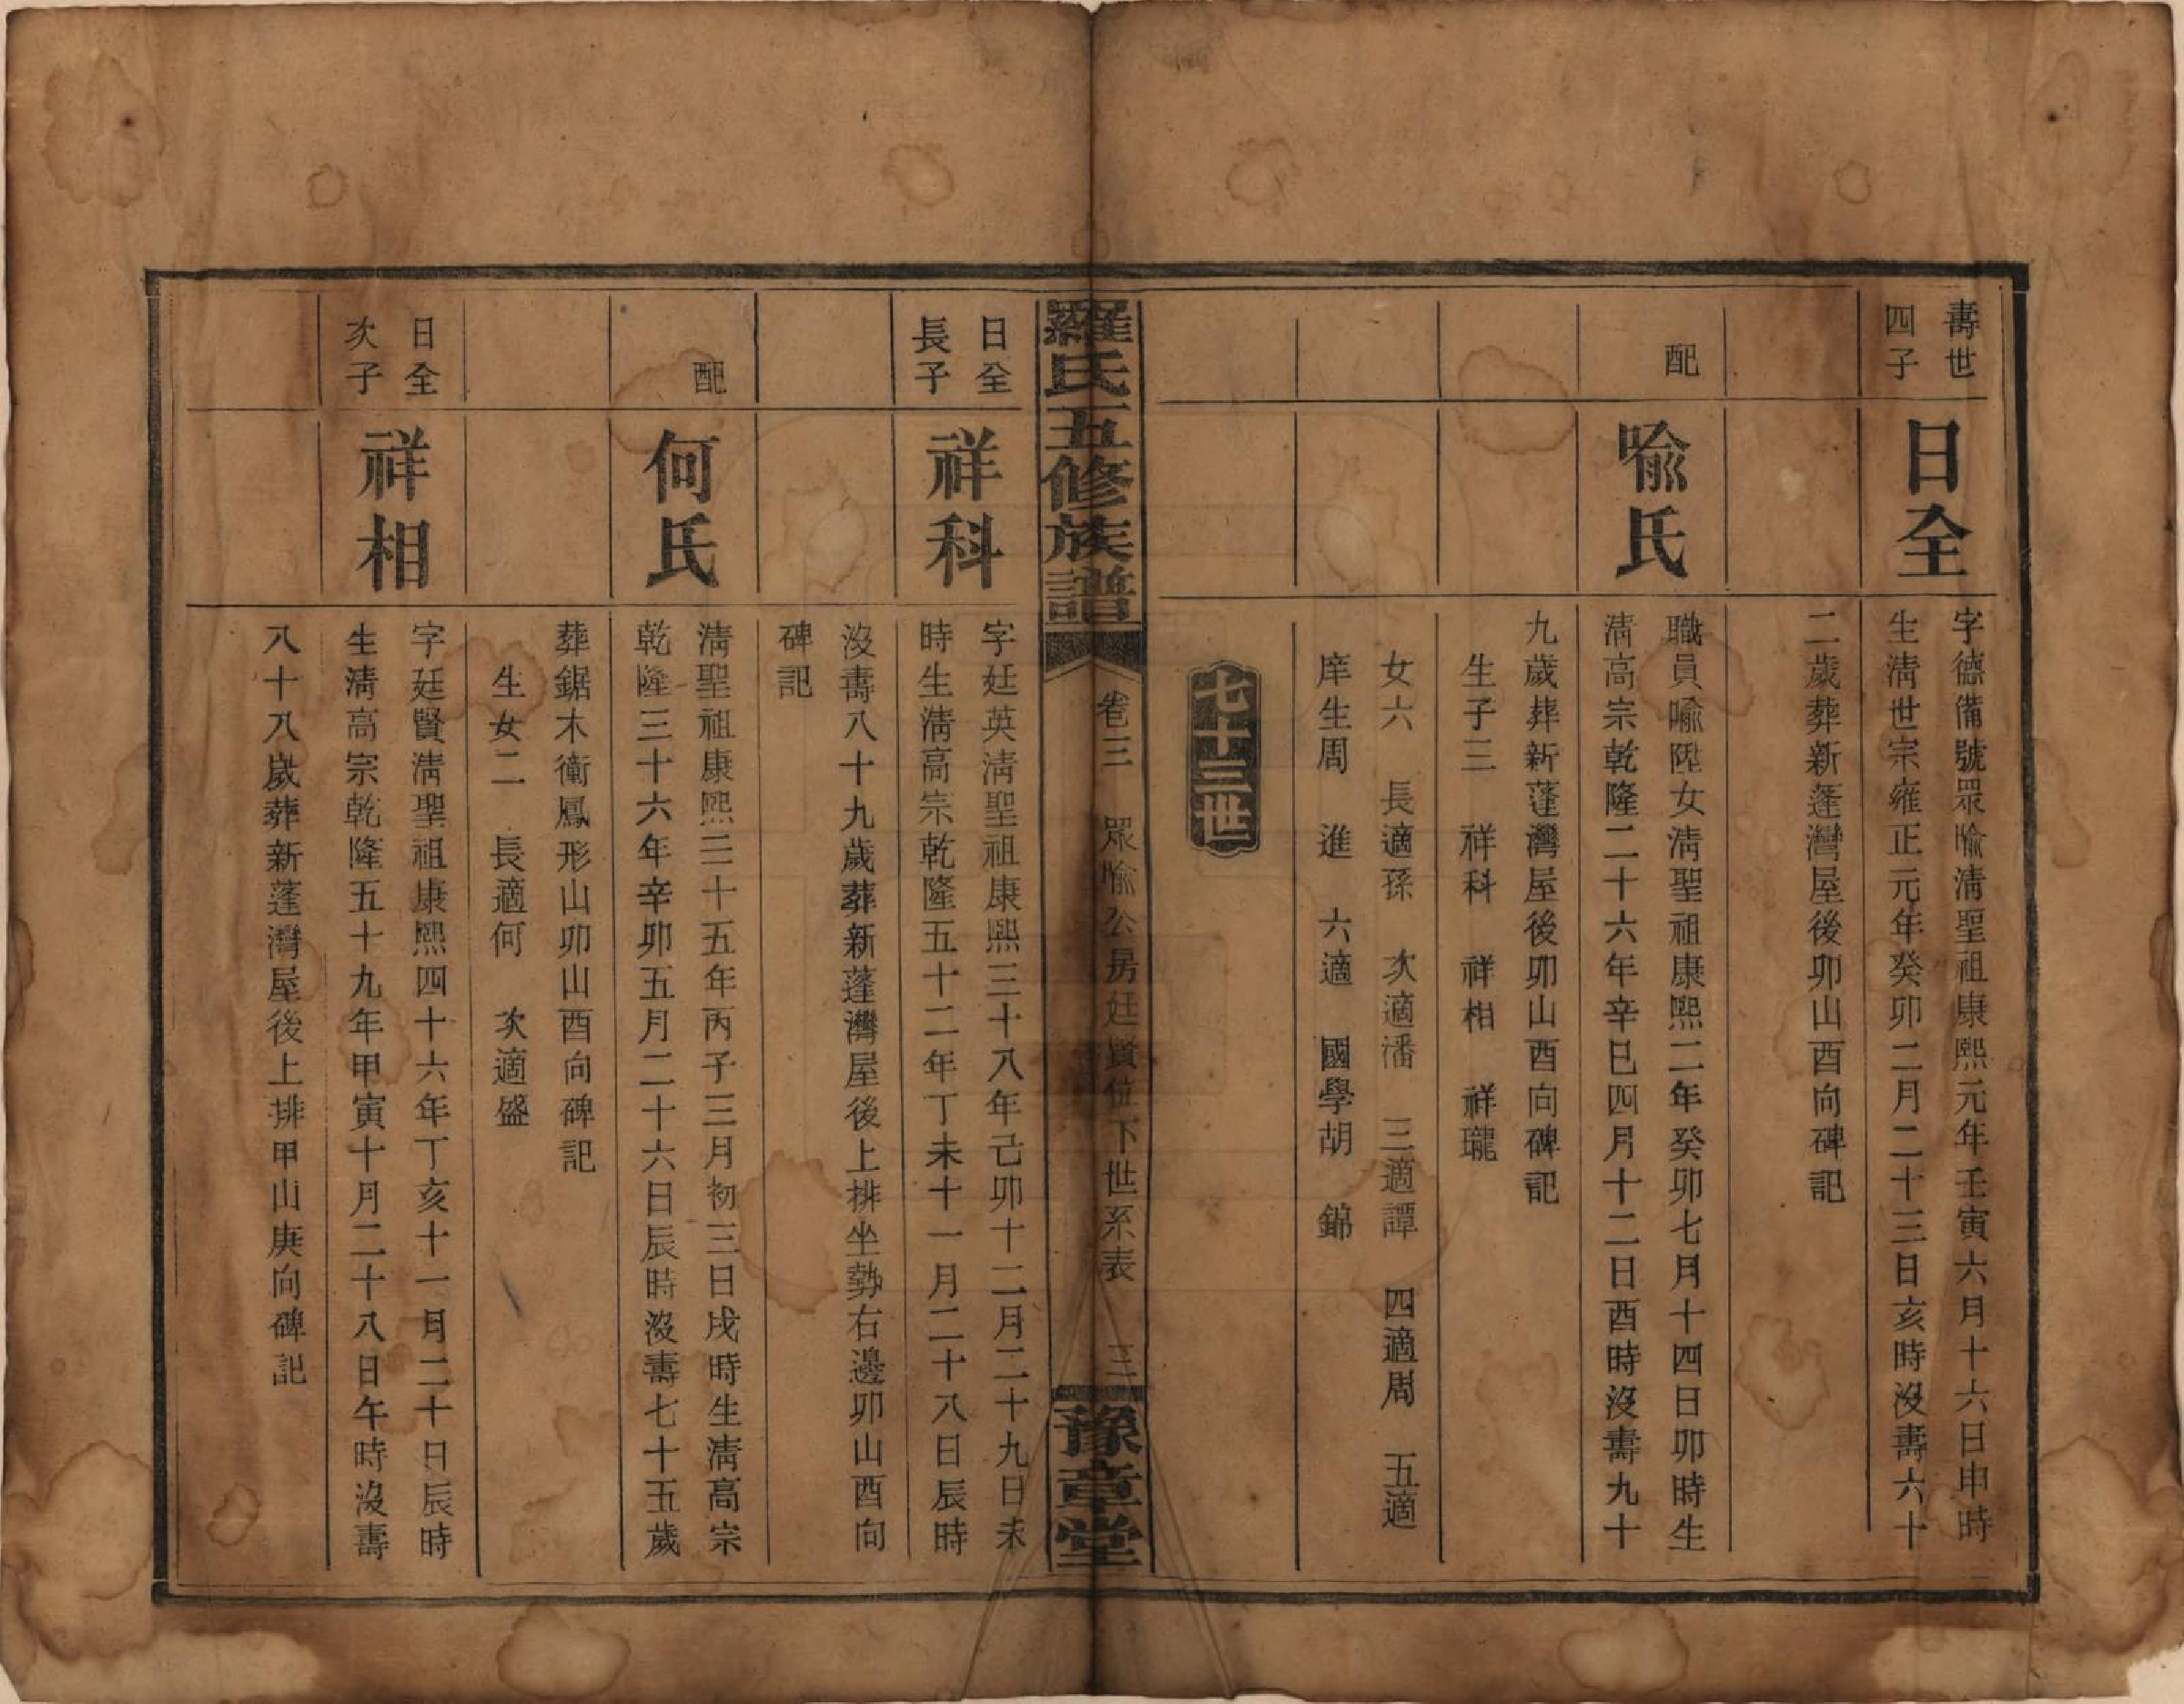 壽世
四子
日全
字德備號眾喻淸聖祖康熙元年壬寅六月十六日申時
生淸世宗雍正元年癸卯二月二十三日亥時沒壽六十
二歲葬新蓬灣屋後卯山酉向碑記
配
喻氏
職員喻陞女淸聖祖康熙二年癸卯七月十四日卯時生
淸高宗乾隆二十六年辛巳四月十二日酉時沒壽九十
九歲葬新蓬灣屋後卯山酉向碑記
生子三 祥科 祥相 祥瓏
女六 長適孫 次適潘 三適譚 四適周 五適
庠生周 進 六適 國學胡 錦
七十三世
羅氏五修族譜
卷三 眾喻公房廷賢位下世系表 三
豫章堂
日全
長子
祥科
字廷英淸聖祖康熙三十八年己卯十二月二十九日未
時生淸高宗乾隆五十二年丁未十一月二十八日辰時
沒壽八十九歲葬新蓬灣屋後上排坐勢右邊卯山酉向
碑記
配
何氏
淸聖祖康熙三十五年丙子三月初三日戌時生淸高宗
乾隆三十六年辛卯五月二十六日辰時沒壽七十五歲
葬鋸木衝鳳形山卯山酉向碑記
生女二 長適何 次適盛
日全
次子
祥相
字廷賢淸聖祖康熙四十六年丁亥十一月二十日辰時
生淸高宗乾隆五十九年甲寅十月二十八日午時沒壽
八十八歲葬新蓬灣屋後上排甲山庚向碑記